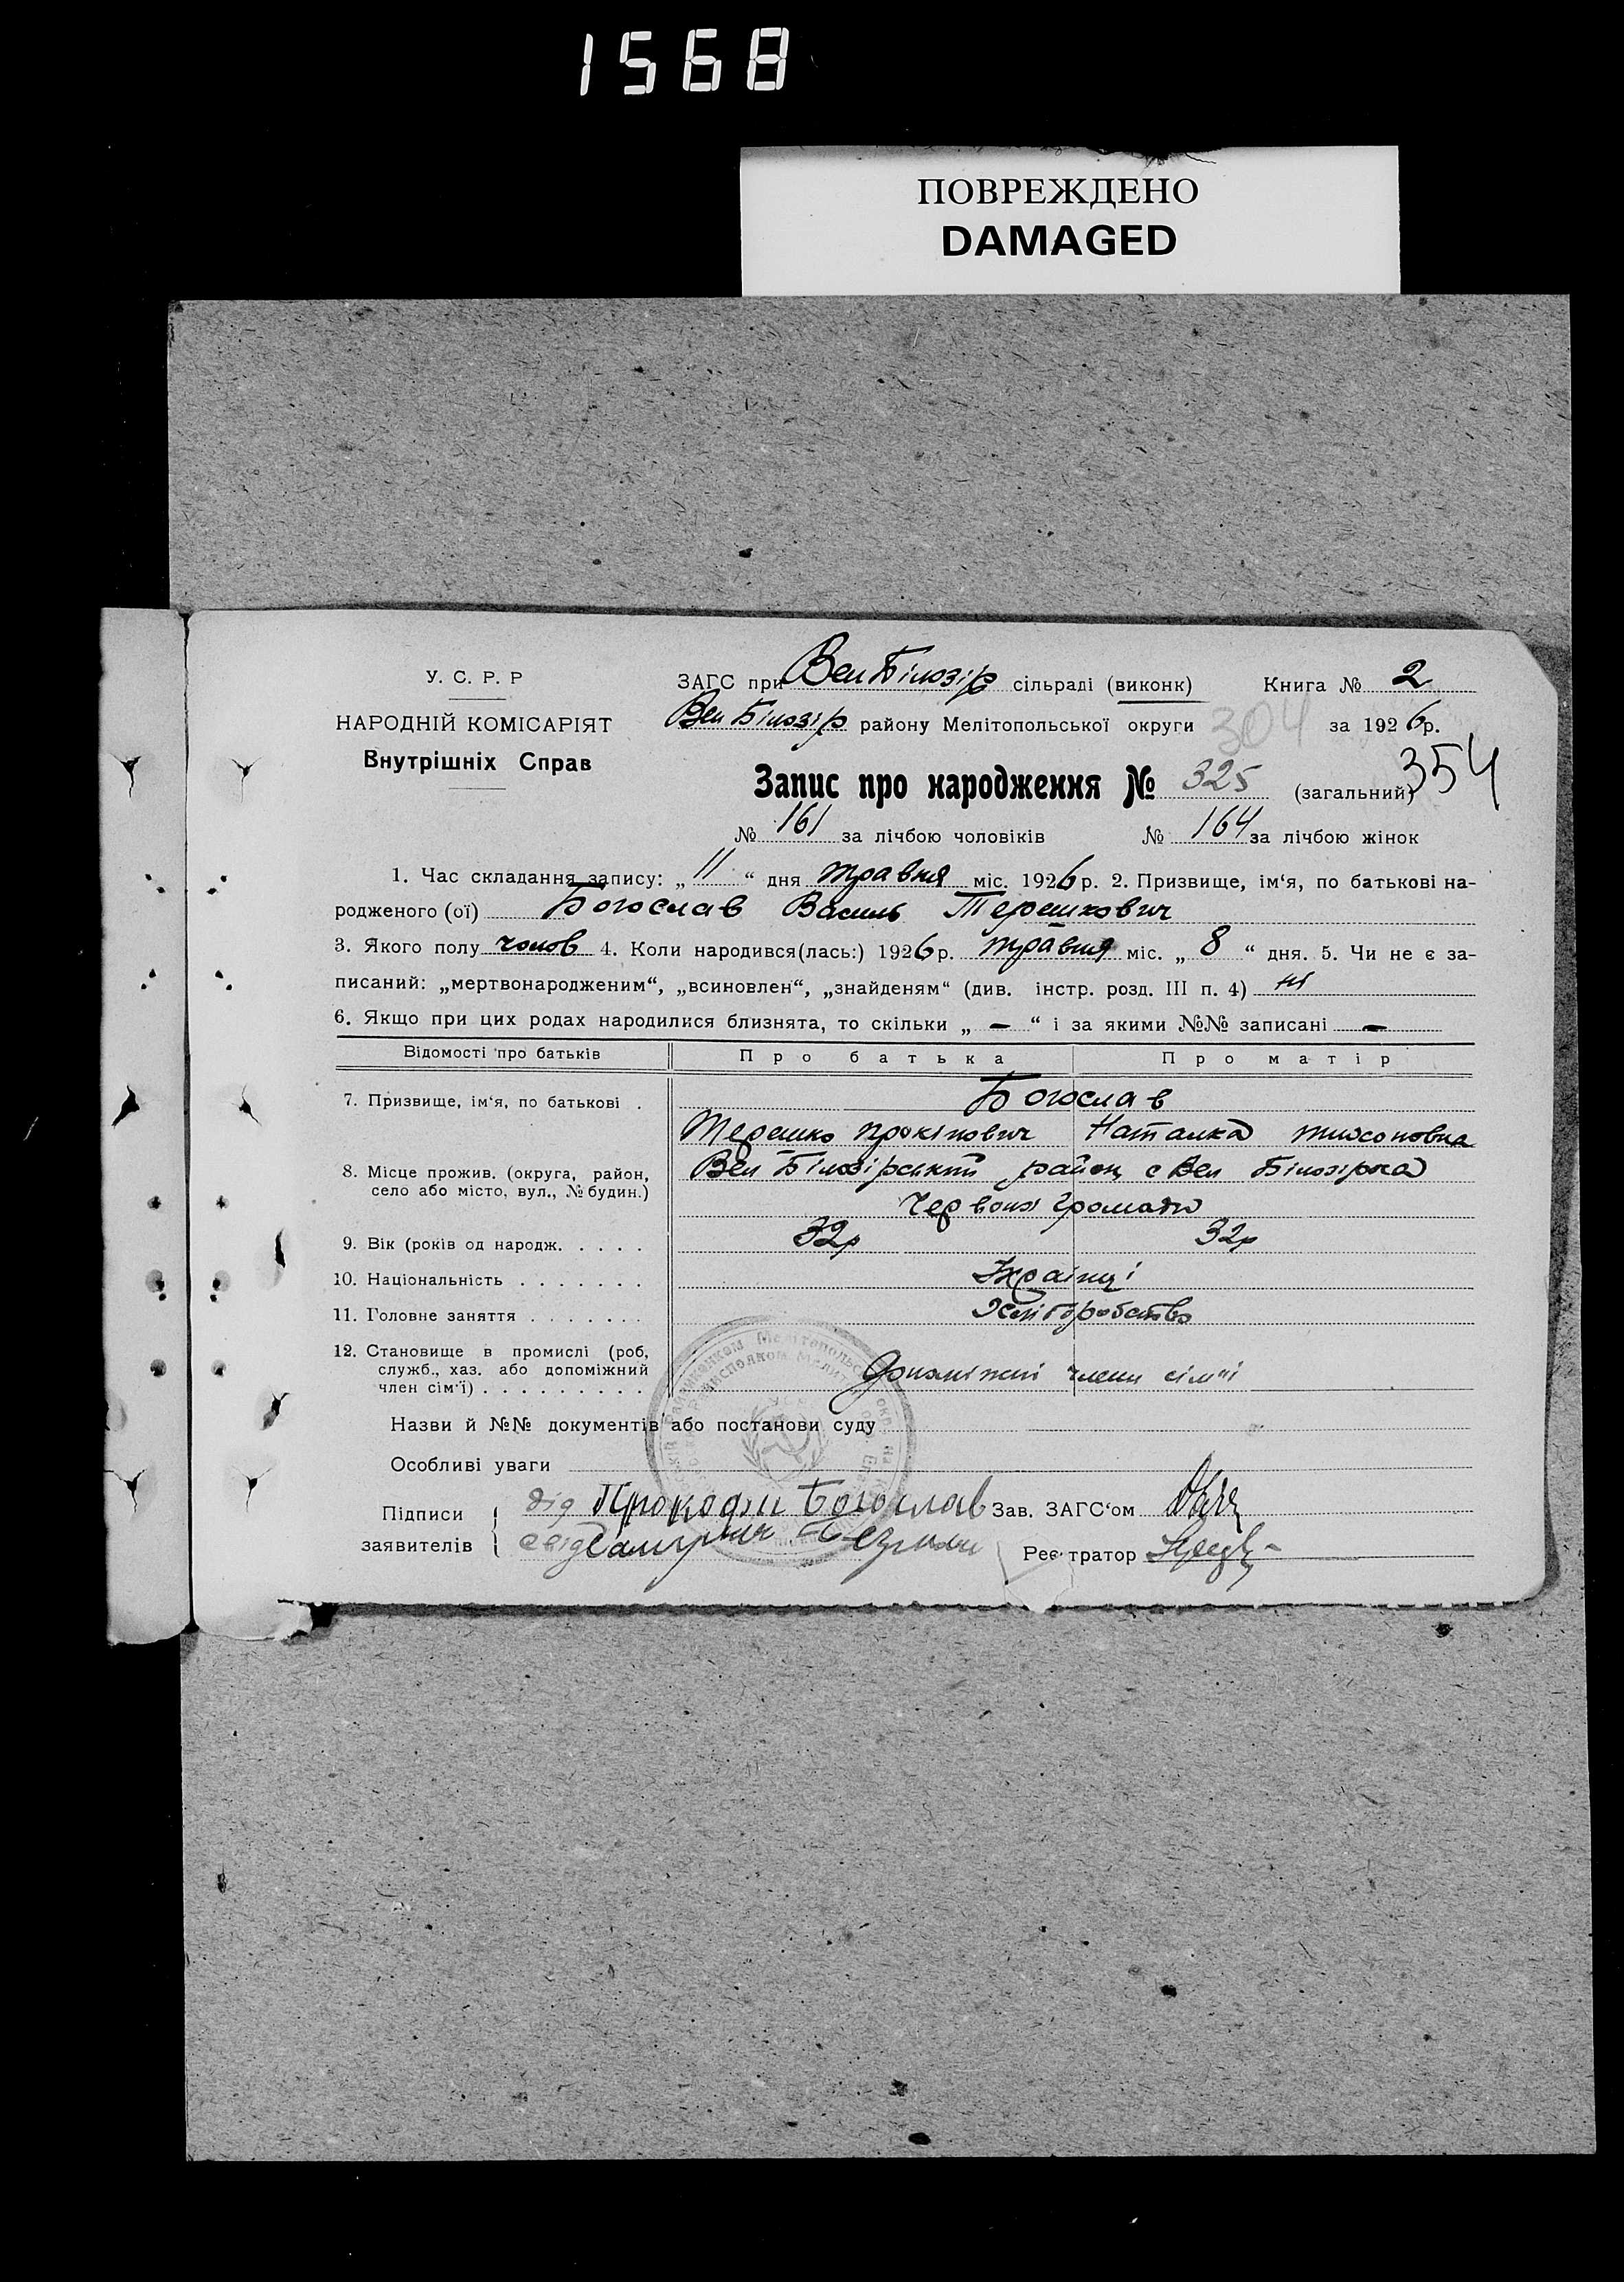 1568
ПОВРЕЖДЕНО
DAMAGED
У. С. Р. Р
НАРОДНІЙ КОМІСАРІЯТ
Внутрішніх Справ
ЗАГС при Вел Білозір сільраді (виконк) Книга № 2
Вел Білозір району Мелітопольської округи 304 за 1926 р.
Запис про народження № 325 (загальний) 354
№ 161 за лічбою чоловіків № 164 за лічбою жінок
1. Час складання запису: „ 11 “ дня травня міс. 1926 р. 2. Призвище, ім‘я, по батькові на-
родженого (ої) Богослав Василь Терешкович
3. Якого полу чолов 4. Коли народився(лась:) 1926 р. травня міс. „ 8 “ дня. 5. Чи не є за-
писаний: „мертвонародженим“, „всиновлен“, „знайденям“ (див. інстр. розд. III п. 4) ні
6. Якщо при цих родах народилися близнята, то скільки „ — “ і за якими №№ записані —
Відомості про батьків Про батька Про матір
7. Призвище, ім‘я, по батькові . Богослав
Терешко Прокіпович Наталка
8. Місце прожив. (округа, район, Вел Білозірський район, с Вел Білозірка
село або місто, вул., № будин.)
Червоні Громади
9. Вік (років од народж. . . . . 32р 32р
10. Національність . . . . . . . Українці
11. Головне заняття . . . . . . . Хліборобство
12. Становище в промислі (роб,
служб., хаз. або допоміжний
член сім‘ї) . . . . . . . . . Допоміжні члени сімʼї
Назви й №№ документів або постанови суду
Особливі уваги
Підписи
заявителів
дід Прокофи Богослав Зав. ЗАГС‘ом
свід
Реєстратор